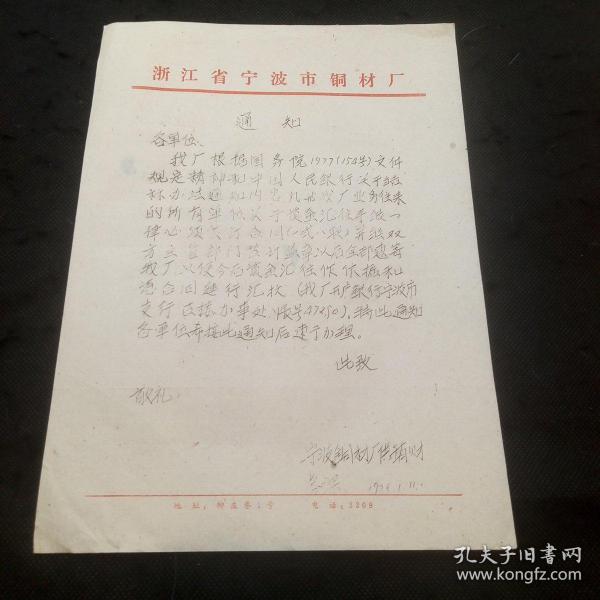 浙江省宁波市铜材厂
通知
各单位、
我厂根据国务院1977(154号)文件
规定精神和中国人民银行关于结
标办法通知内容凡与我厂业务往来
的所有单位关于货款汇往手续一
律必须先订合同(一式八联)并经双
方主管部门签订盖章以后全部寄
我厂以便今后货款汇往作依据和
凭合同进行汇拨(我厂开户银行宁波市
支行 办事处 帐号47450),特此通知
各单位希接此通知后速予办理。
此致
敬礼
宁波铜材厂供销财
197 .1.11.
地址:柳庄巷1号 电话:3208
孔夫子旧书网
www.kongfz.com